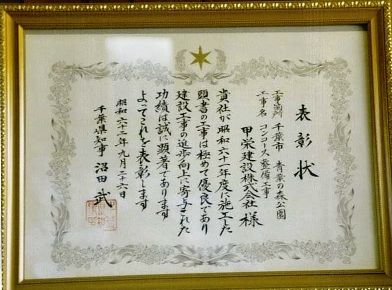 表彰状
工事箇所 千葉市 青葉の森公園
工事名 コンコース整備工事
甲栄建設株式会社 様
貴社が昭和六十一年度に施工した
頭書の工事は極めて優良であり
建設工事の進歩向上に寄与された
功績は誠に顕著であります
よってこれを表彰します
昭和六十二年九月二十六日
千葉県知事 沼田 武